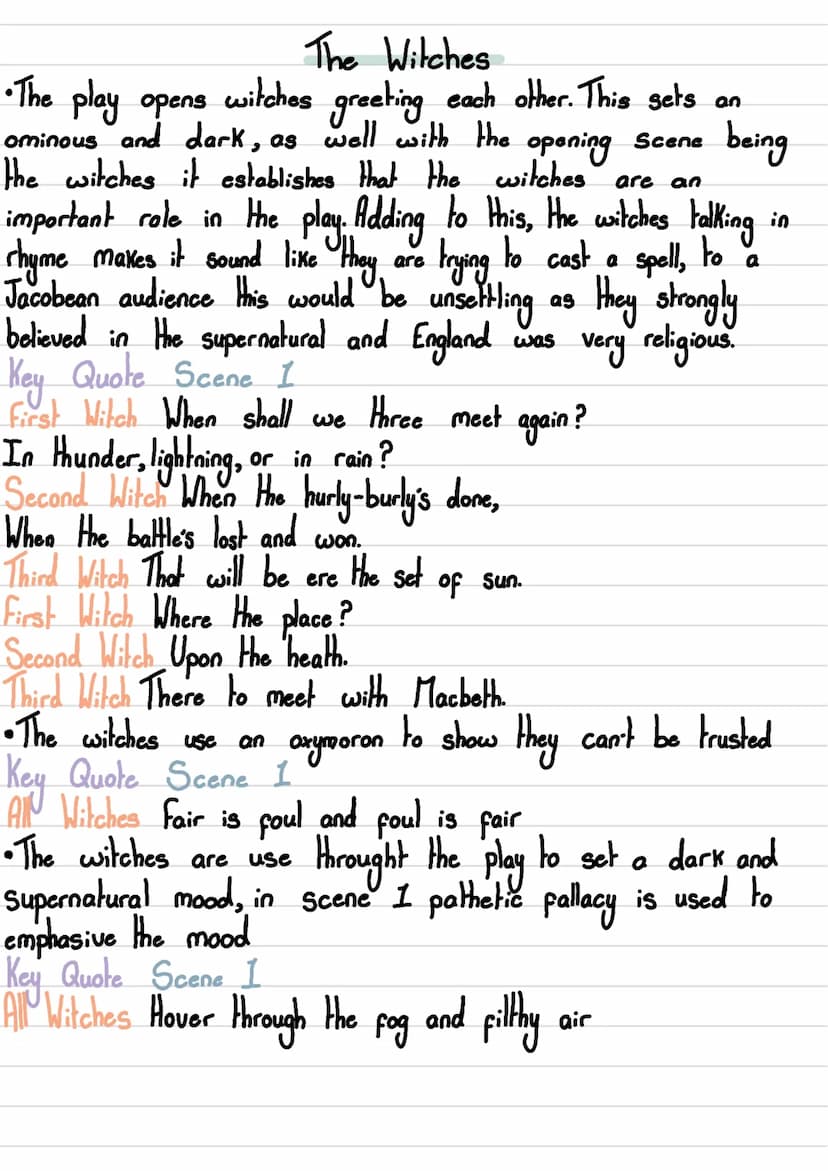 The Witches
•The play opens witches greeting each other. This sets an
ominous and dark, as well with the opening scene being
the witches it establishes that the witches are an
important role in the play. Adding to this, the witches talking in
rhyme makes it sound like they are trying to cast a spell, to a
Jacobean audience this would be unsettling as they strongly
believed in the supernatural and England was very religious.
Key Quote Scene 1
First Witch When shall we three meet again?
In thunder, lightning, or in rain?
Second Witch When the hurly-burly's done,
When the battle's lost and won.
Third Witch That will be ere the set of sun.
First Witch Where the place?
Second Witch Upon the heath.
Third Witch There to meet with Macbeth.
•The witches use an oxymoron to show they can't be trusted
Key Quote Scene 1
All Witches Fair is foul and foul is fair
•The witches are use throught the play to set a dark and
supernatural mood, in scene 1 pathetic fallacy is used to
emphasive the mood
Key Quote Scene 1
All Witches Hover through the fog and filthy air